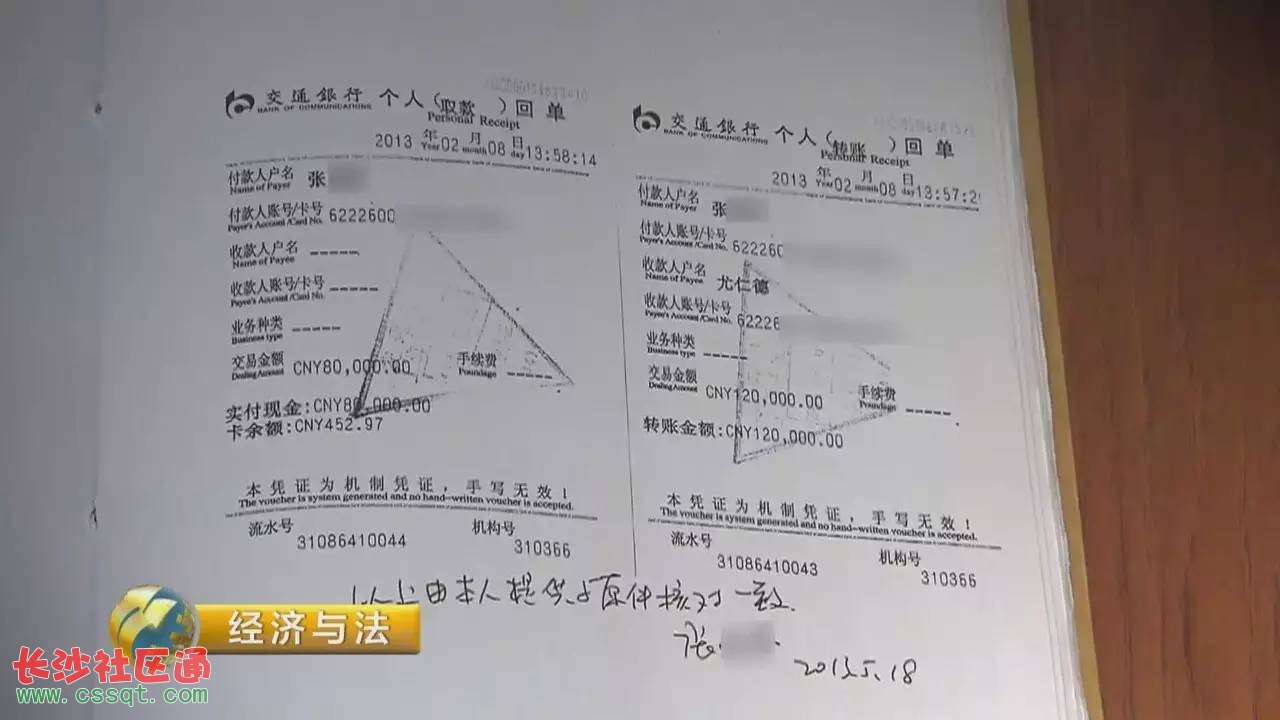 交通銀行 个人(取款 )回单
BANK OF COMMUNICATIONS Personal Receipt
2013 年Year 02 月month 08 日day 13:58:14
付款人户名 张
Name of Payer
付款人账号/卡号 6222600
Payer's Account/Card No.
收款人户名 -----
Name of Payee
收款人账号/卡号 -----
Payee's Account/Card No.
业务种类 -----
Business type
交易金额 CNY80,000.00 手续费 -----
Dealing Amount Poundage
实付现金:CNY80,000.00
卡余额:CNY452.97
本凭证为机制凭证,手写无效!
The voucher is system generated and no hand-written voucher is accepted.
流水号 机构号
31086410044 310366
交通銀行 个人(转账 )回单
BANK OF COMMUNICATIONS Personal Receipt
2013 年Year 02 月month 08 日day 13:57:2
付款人户名 张
Name of Payer
付款人账号/卡号 622260
Payer's Account/Card No.
收款人户名 尤仁德
Name of Payee
收款人账号/卡号 62226
Payee's Account/Card No.
业务种类 -----
Business type
交易金额 CNY120,000.00 手续费 -----
Dealing Amount Poundage
转账金额:CNY120,000.00
本凭证为机制凭证,手写无效!
The voucher is system generated and no hand-written voucher is accepted.
流水号 机构号
31086410043 310366
以上由本人提供与原件核对一致.
张
2013.5.18
经济与法
长沙社区通
www.cssqt.com